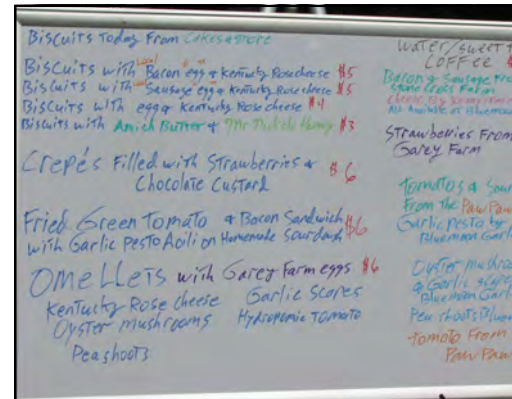 Biscuits Today From Cakes & more
Biscuits with Local Bacon egg & Kentucky Rose cheese $5
Biscuits with Local Sausage egg & Kentucky Rose cheese $5
Biscuits with egg & Kentucky Rose cheese $4
Biscuits with Amish Butter & Honey $3
Crepés Filled with Strawberries &
Chocolate Custard $6
Fried Green Tomato & Bacon Sandwich $6
with Garlic Pesto Aoili on Homemade Sourdough
Omellets with Garey Farm eggs $6
Kentucky Rose cheese Garlic Scapes
Oyster mushrooms Hydroponic Tomato
Peashoots
Water/sweet t
Coffee $
Bacon & Sausage Fro
Stone Cross Farm
Cheese By Kenny
All Available at Bluemoon
Strawberries From
Garey Farm
Tomatos & Sour
From the Paw Paw
Garlic Pesto by
Bluemoon Garli
Oyster mushroo
& Garlic scapes
Bluemoon Garli
Pea shoots Bluem
Tomato From
Paw Paw